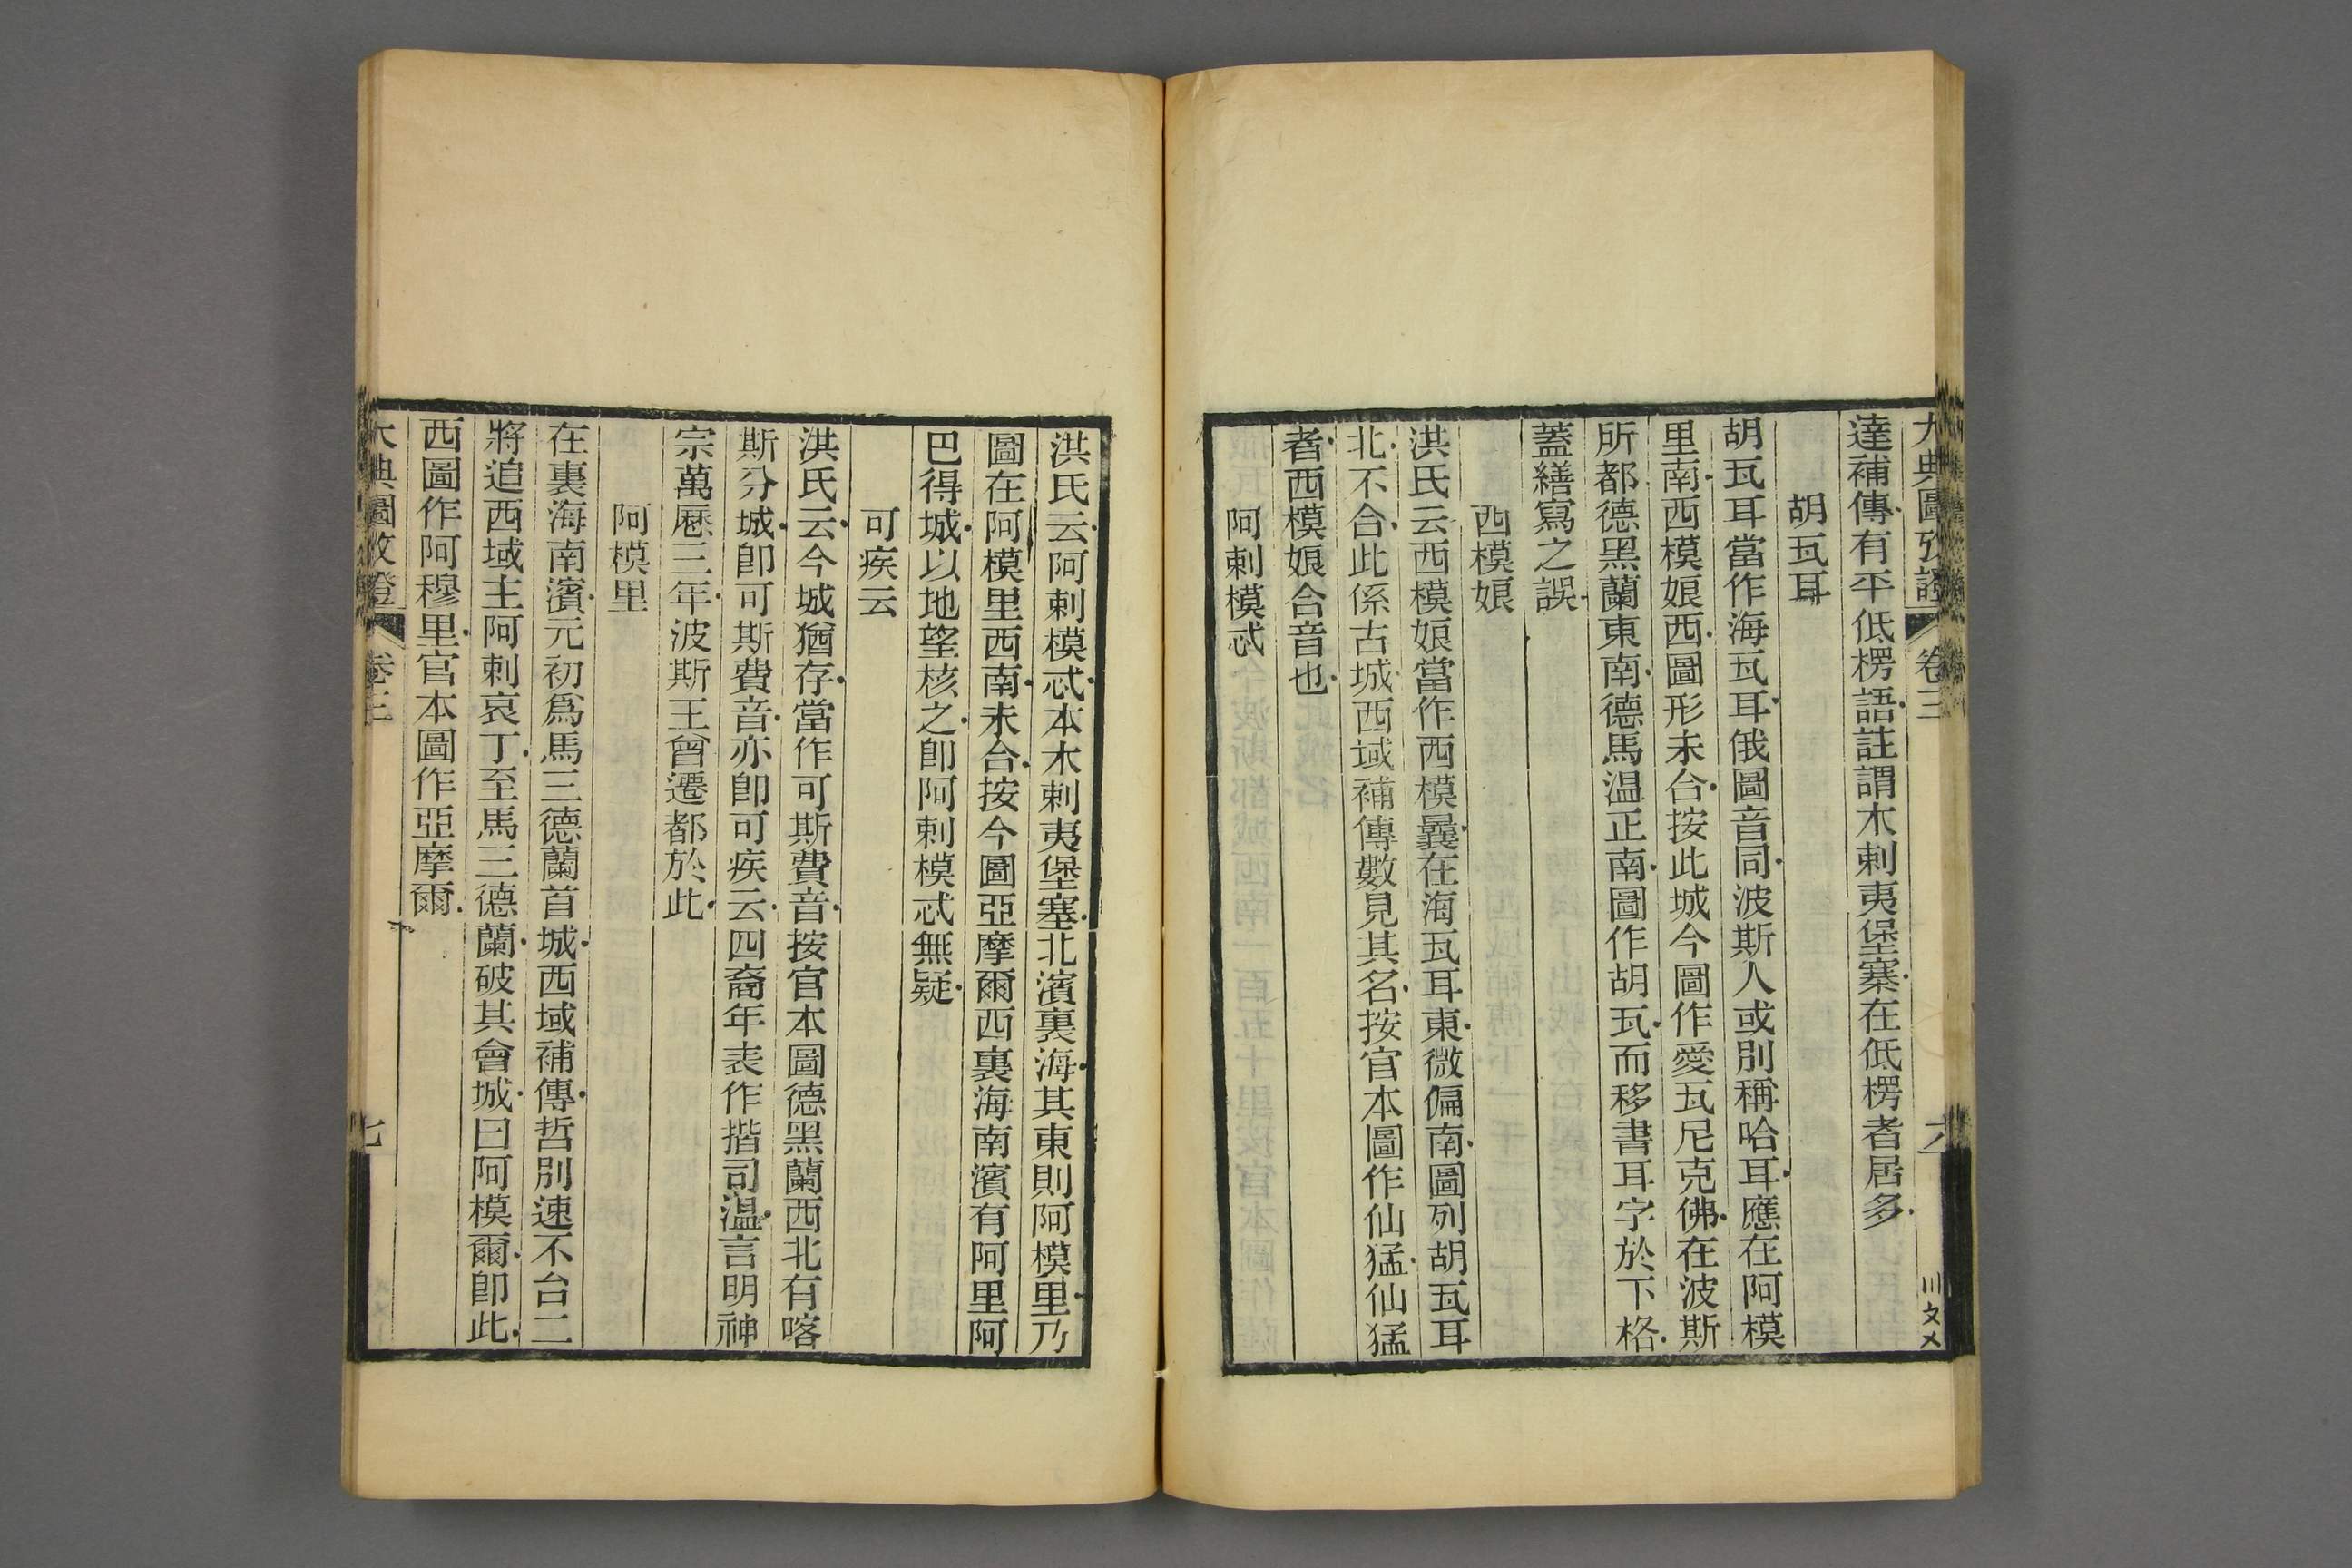 大典圖攷證 卷三 六 川文乂
達補傳有平低楞語註謂木剌夷堡寨在低楞者居多
胡瓦耳
胡瓦耳當作海瓦耳俄圖音同波斯人或別稱哈耳應在阿模
里南西模娘西圖形未合按此城今圖作愛瓦尼克佛在波斯
所都德黑蘭東南德馬温正南圖作胡瓦而移書耳字於下格
蓋繕寫之誤
西模娘
洪氏云西模娘當作西模曩在海瓦耳東微偏南圖列胡瓦耳
北不合此係古城西域補傳數見其名按官本圖作仙猛仙猛
者西模娘合音也
阿剌模忒
洪氏云阿剌模忒本木剌夷堡塞北濱裏海其東則阿模里乃
圖在阿模里西南未合按今圖亞摩爾西裏海南濱有阿里阿
巴得城以地望核之卽阿剌模忒無疑
可疾云
洪氏云今城猶存當作可斯費音按官本圖德黑蘭西北有喀
斯分城卽可斯費音亦卽可疾云四裔年表作揩司温言明神
宗萬厯三年波斯王曾遷都於此
阿模里
在裏海南濱元初爲馬三德蘭首城西域補傳哲別速不台二
將追西域主阿剌哀丁至馬三德蘭破其會城曰阿模爾卽此
西圖作阿穆里官本圖作亞摩爾
大典圖攷證 卷三 七